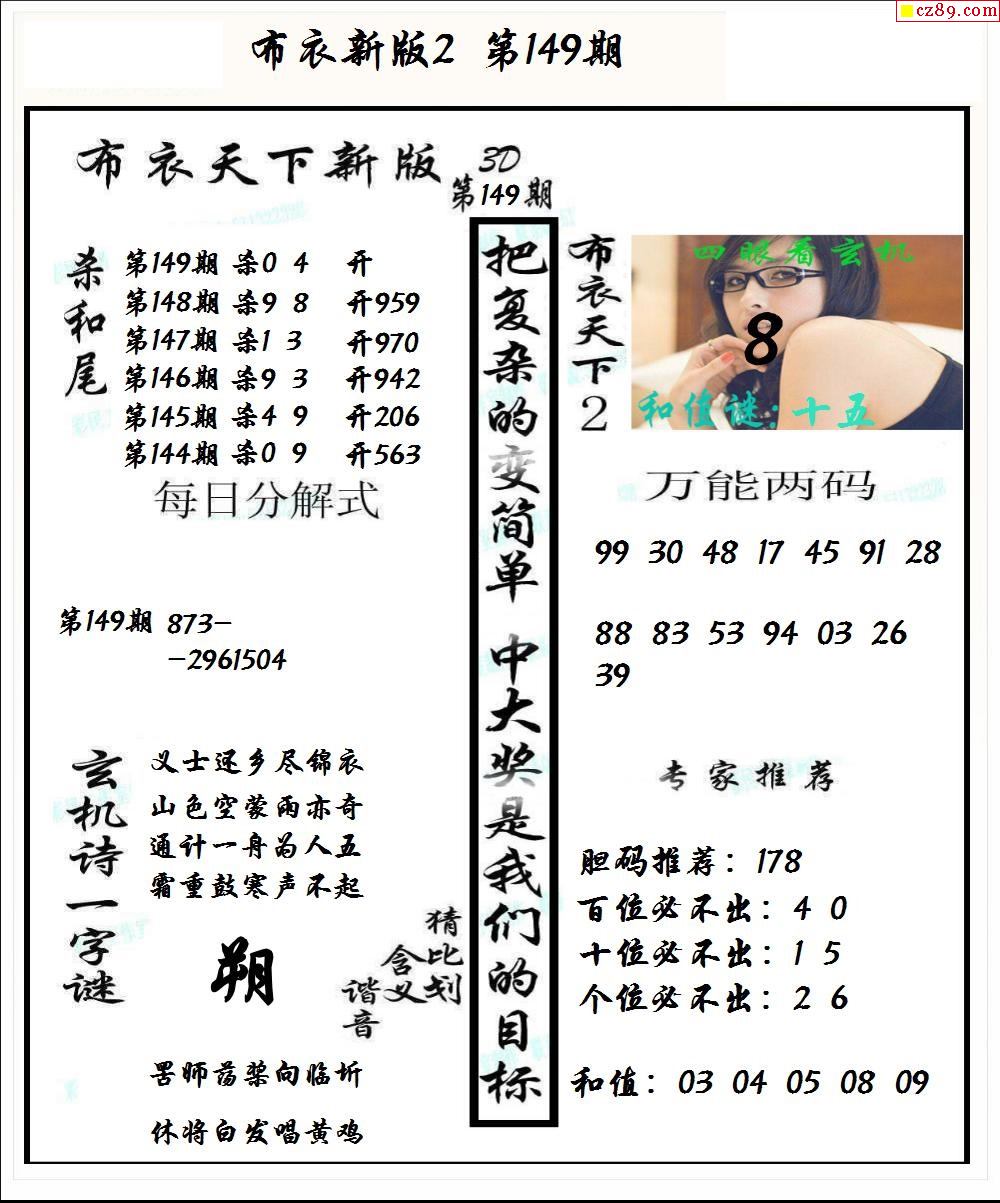 cz89.com
布衣新版2 第149期
布衣天下新版 3D
第149期
杀和尾
第149期 杀0 4 开
第148期 杀9 8 开959
第147期 杀1 3 开970
第146期 杀9 3 开942
第145期 杀4 9 开206
第144期 杀0 9 开563
每日分解式
第149期 873-
-2961504
玄机诗一字谜
义士还乡尽锦衣
山色空蒙雨亦奇
通计一舟为人五
霜重鼓寒声不起
朔
猜比划
含义
谐音
罟师荡桨向临圻
休将白发唱黄鸡
把复杂的变简单 中大奖是我们的目标
布衣天下2
四眼看玄机
8
和值谜:十五
万能两码
99 30 48 17 45 91 28
88 83 53 94 03 26
39
专家推荐
胆码推荐：178
百位必不出：4 0
十位必不出：1 5
个位必不出：2 6
和值：03 04 05 08 09